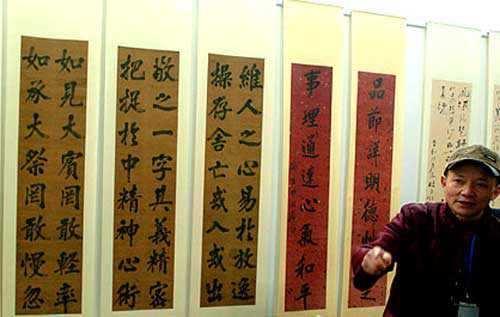 品節詳明德
事理通達心氣和平
維人之心易於放逸
操存舍亡或入或出
敬之一字其義精密
把捉於中精神心術
如見大賓罔敢輕率
如承大祭罔敢慢忽